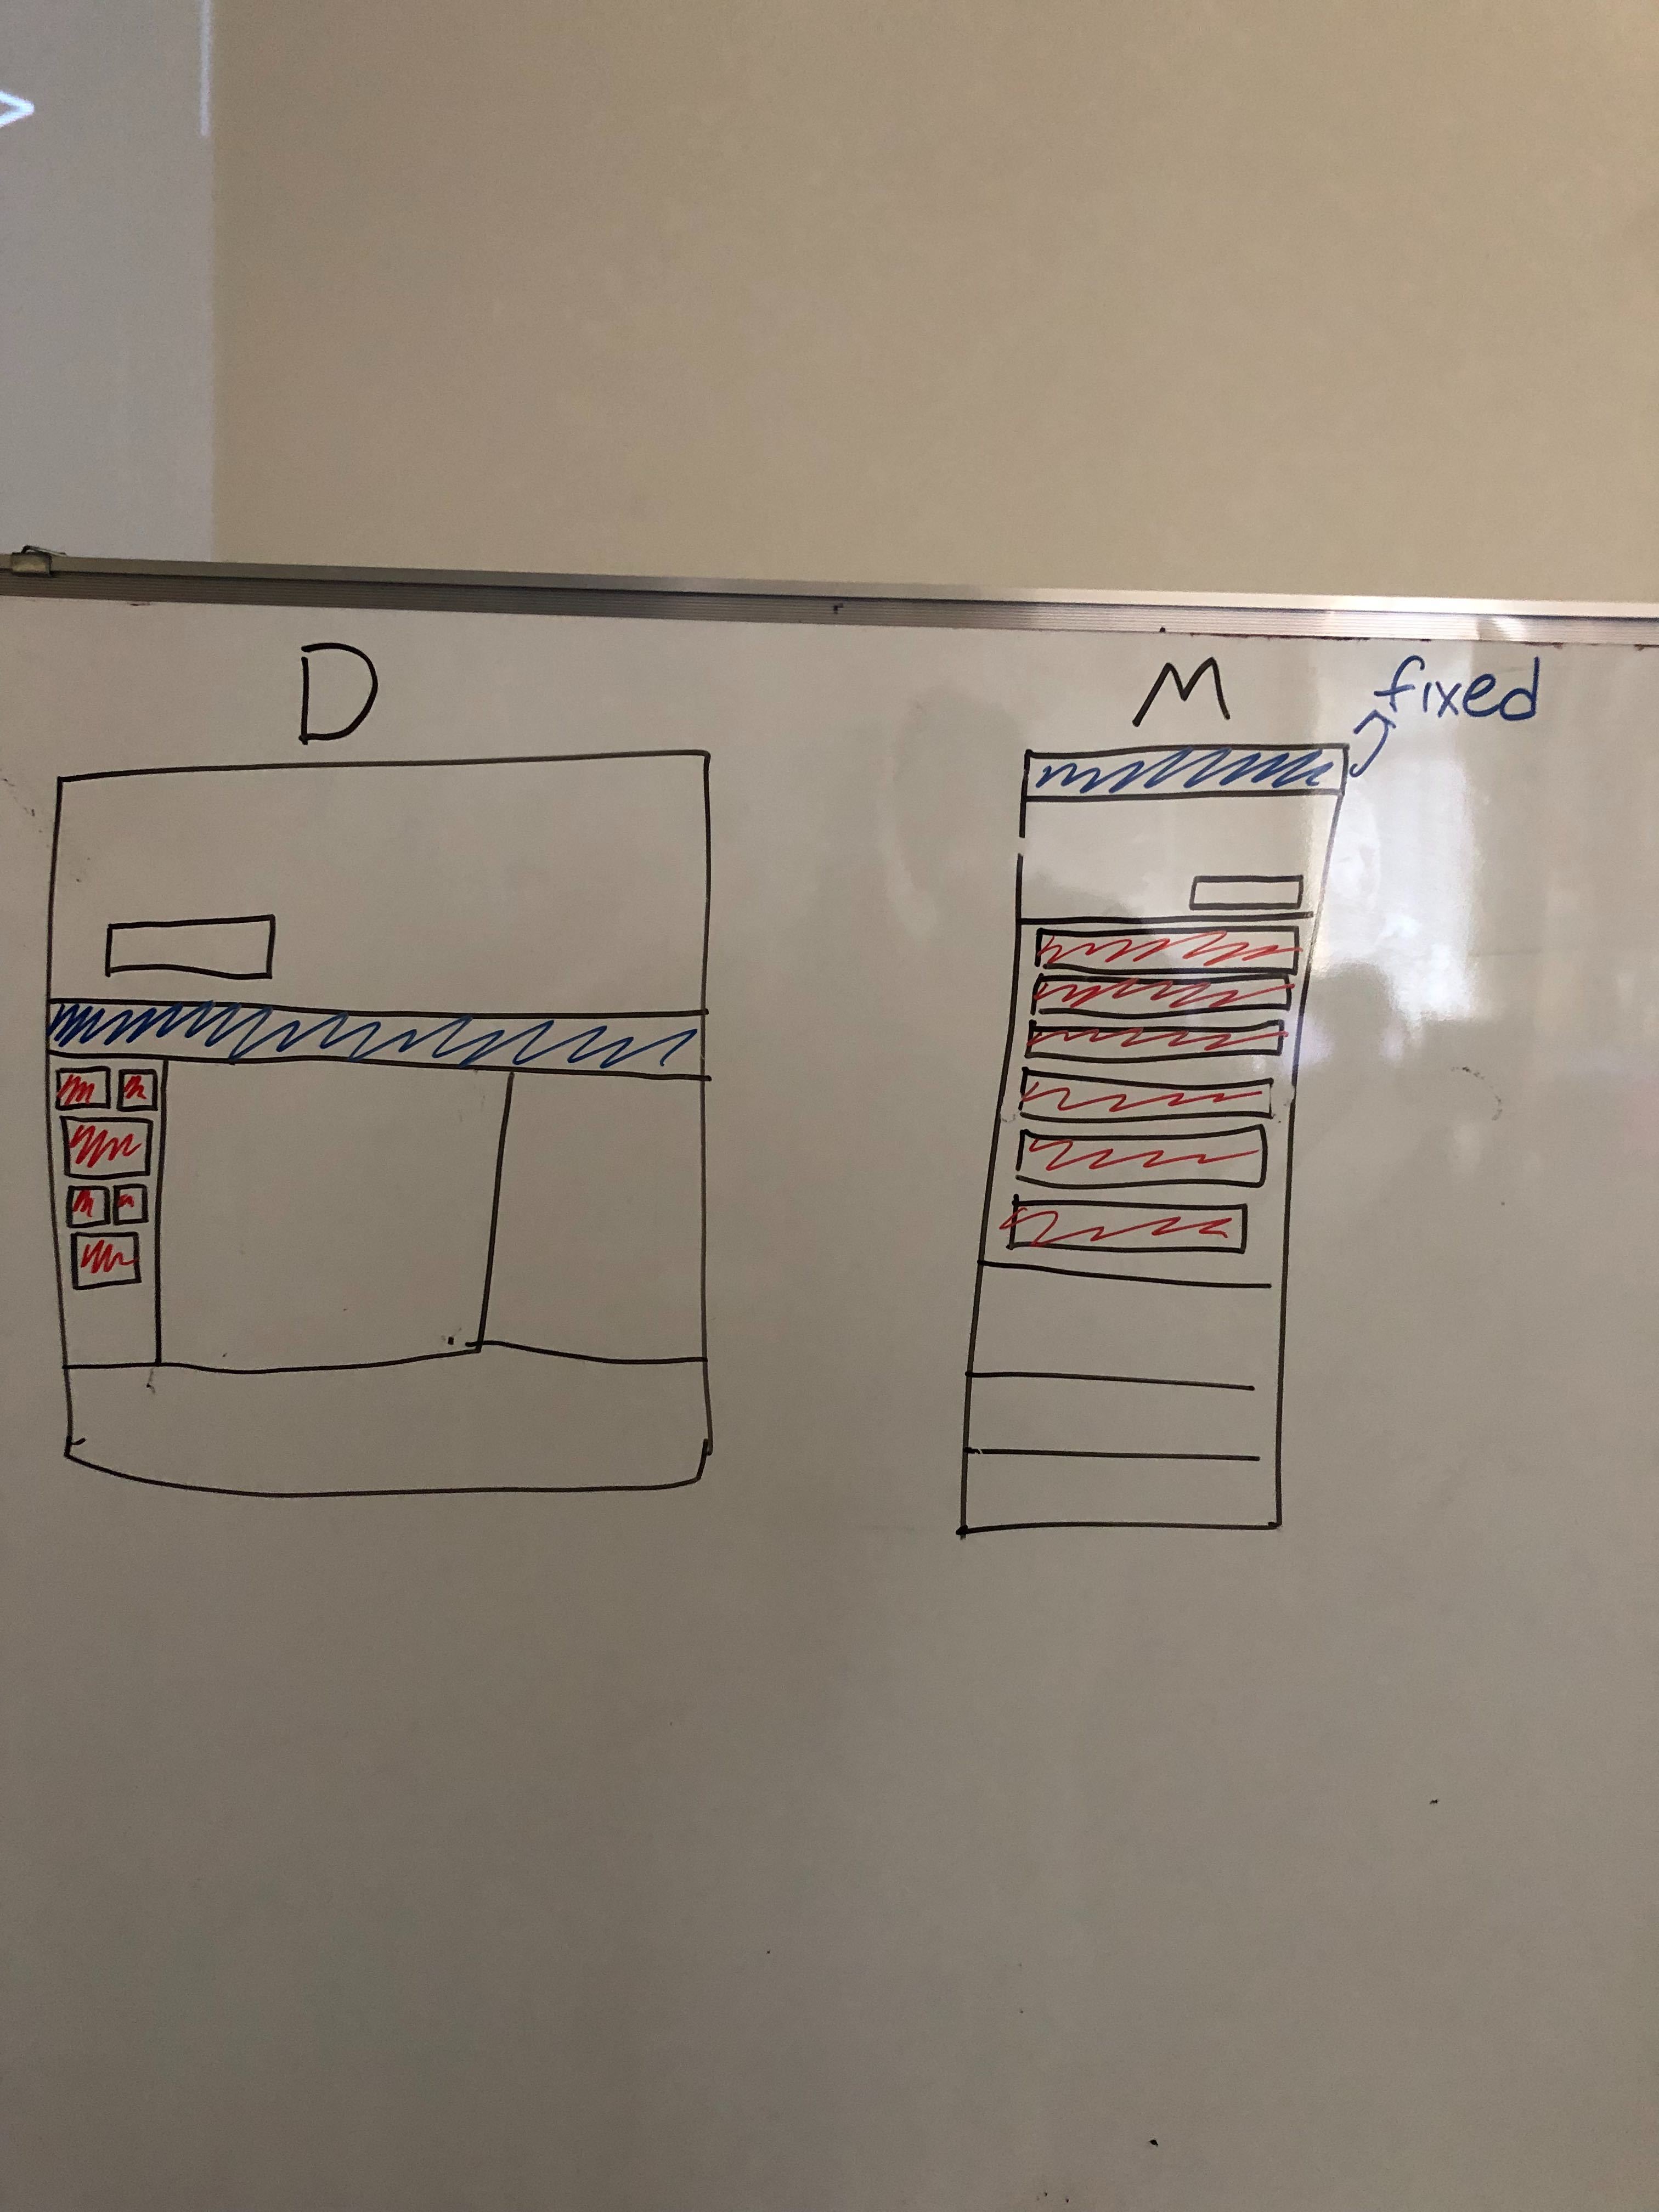 D
M
fixed